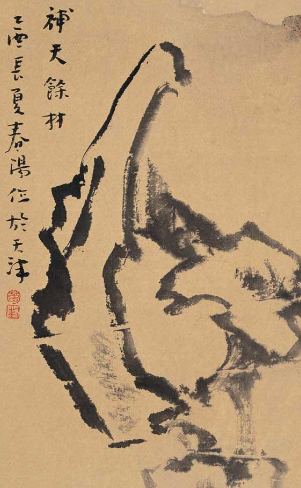 補天餘材
乙酉長夏春陽作於天津